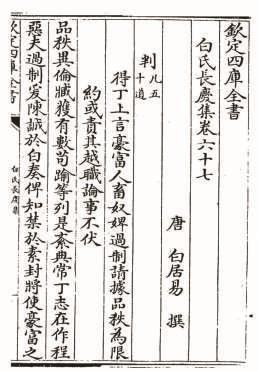 欽定四庫全書
白氏長慶集卷六十七
唐 白居易 撰
判凡五十道
得丁上言豪富人畜奴婢過制請據品秩為限
約或責其越職論事不伏
品秩異倫臧獲有數苟踰等列是紊典常丁志在作程
惡夫過制爰陳誠於白奏俾知禁於素封將使豪富之
欽定四庫全書
白氏長慶集